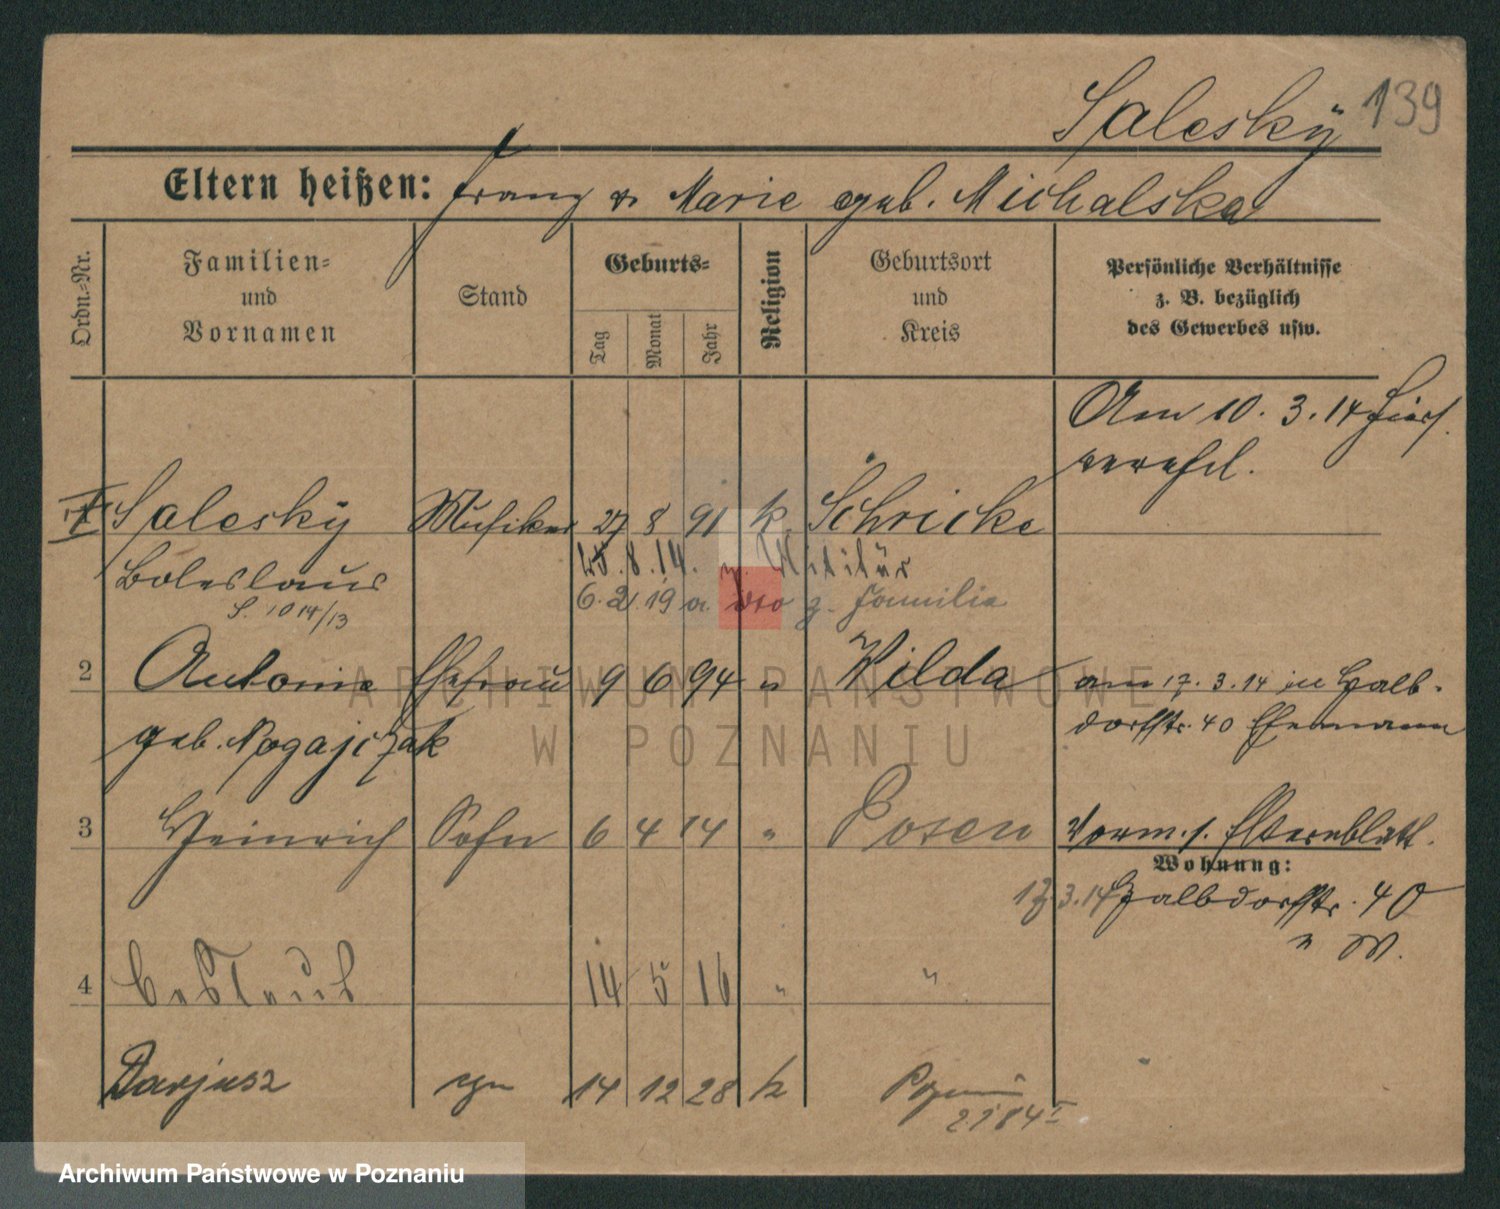 Salesky 139
Eltern heißen: Franz u Marie geb. Michalska
Ordn.-Nr.
Familien-
und
Vornamen
Stand
Geburts-
Tag
Monat
Jahr
Religion
Geburtsort
und
Kreis
Persönliche Verhältnisse
z. B. bezüglich
des Gewerbes usw.
Am 10. 3. 14 hier
verehel.
I Salesky Musiker 27 8 91 k. Schricke
Boleslaus 8.14. z. Militär
S. 1014/13 6.2.19 a. dto z. Familie
2 Antonie Ehefrau 9 6 94 " Wilda am 17. 3. 14 in Halb-
dorfstr. 40 Ehemann
geb. Nogajczak
3 Heinrich Sohn 6 4 14 " Posen Vorm. s. Elternblatt.
Wohnung:
17. 3. 14 Halbdorfstr. 40
" W.
4 14 5 16 " "
Darjusz syn 14 12 28 k Poznań
2184 I
ARCHIWUM PAŃSTWOWE
W POZNANIU
Archiwum Państwowe w Poznaniu